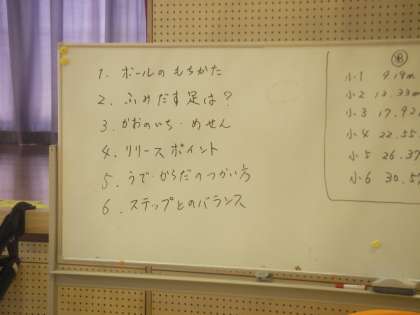 1. ボールのもちかた
2. ふみだす足は?
3. かおのいち・めせん
4. リリースポイント
5. うで・からだのつかい方
6. ステップとのバランス
男
小1 9.19m
小2 13.33m
小3 17.92
小4 22.55
小5 26.37
小6 30.5